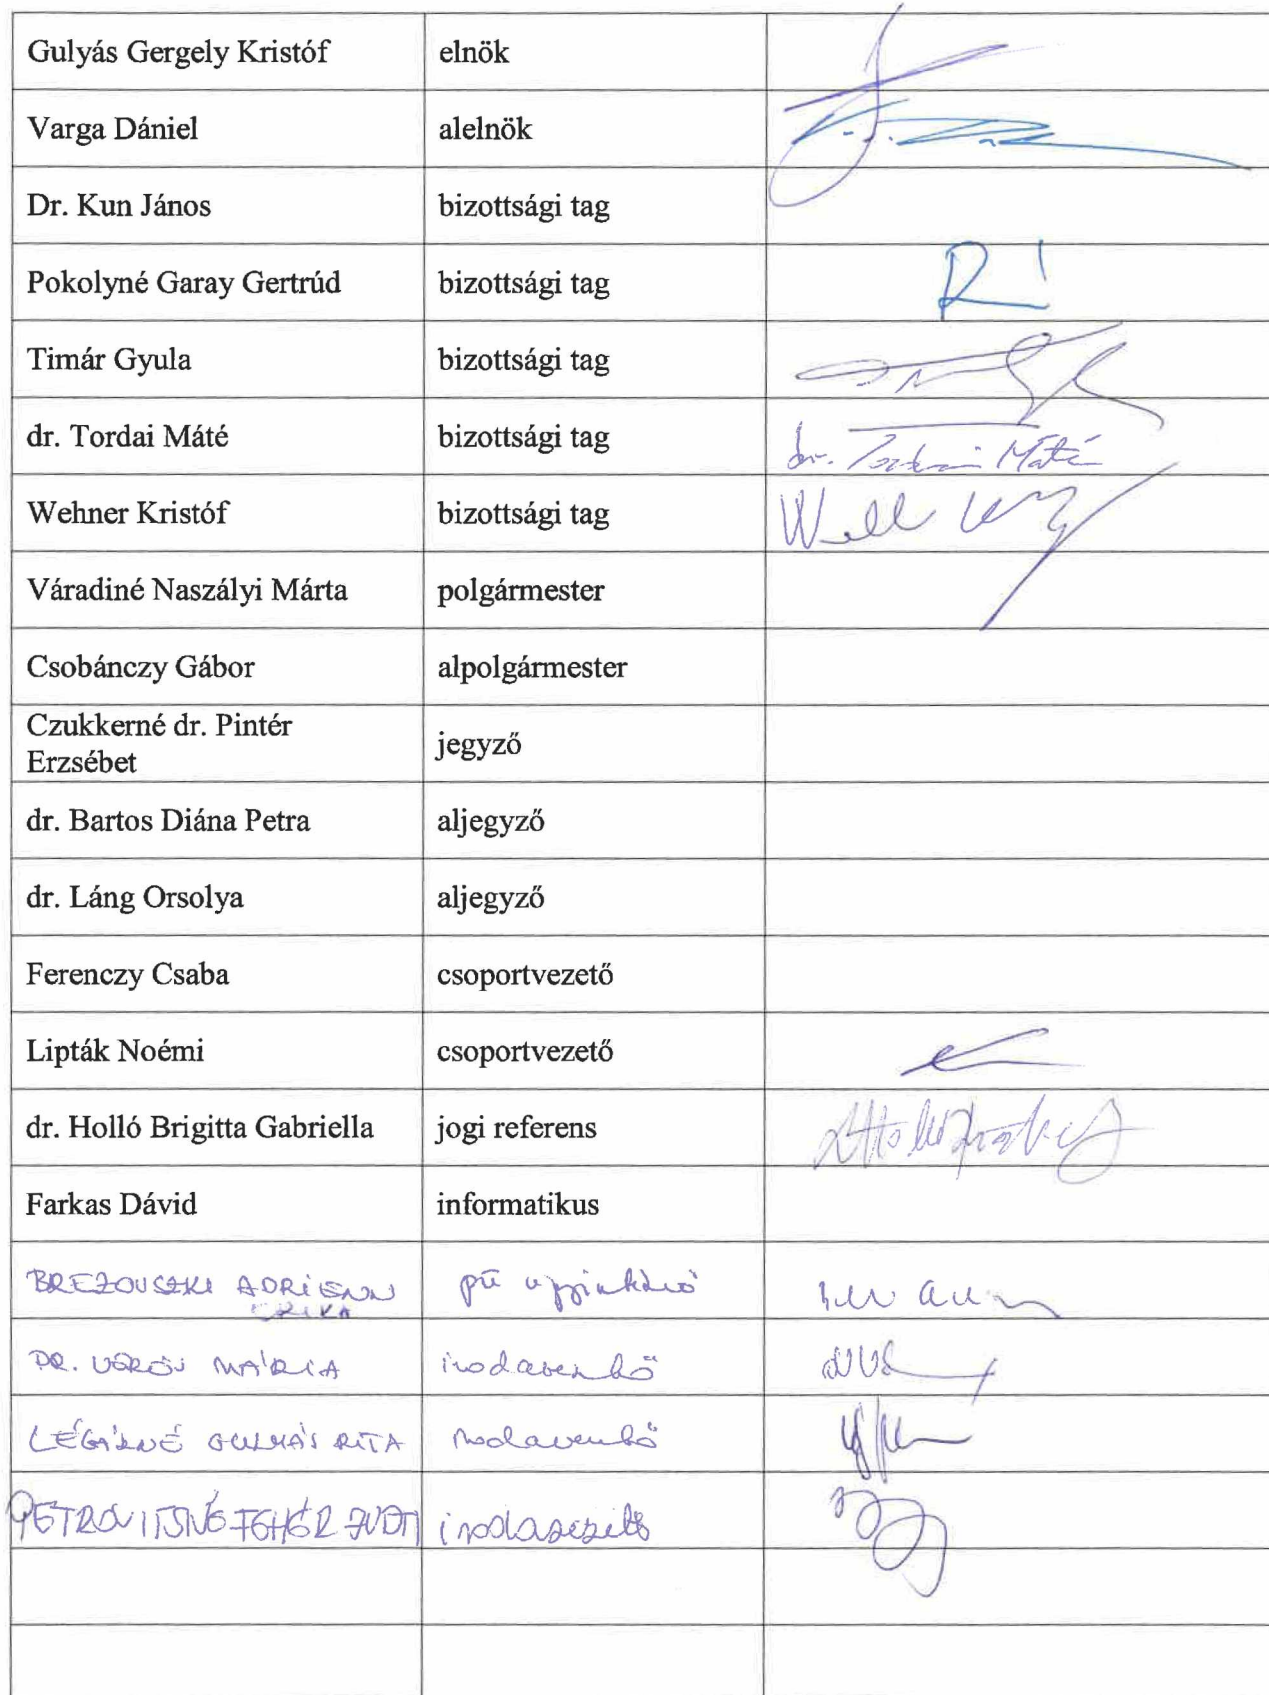 Gulyás Gergely Kristóf elnök
Varga Dániel alelnök
Dr. Kun János bizottsági tag
Pokolyné Garay Gertrúd bizottsági tag
Timár Gyula bizottsági tag
dr. Tordai Máté bizottsági tag dr. Tordai Máté
Wehner Kristóf bizottsági tag
Váradiné Naszályi Márta polgármester
Csobánczy Gábor alpolgármester
Czukkerné dr. Pintér
Erzsébet
jegyző
dr. Bartos Diána Petra aljegyző
dr. Láng Orsolya aljegyző
Ferenczy Csaba csoportvezető
Lipták Noémi csoportvezető
dr. Holló Brigitta Gabriella jogi referens
Farkas Dávid informatikus
BREZOVSZKI ADRIENN pü
ERIKA
DR. VÖRÖS MÁRIA irodavezető
LÉGÁRNÉ GULYÁS RITA irodavezető
PETROVITSNÉ FEHÉR JUDIT irodavezető